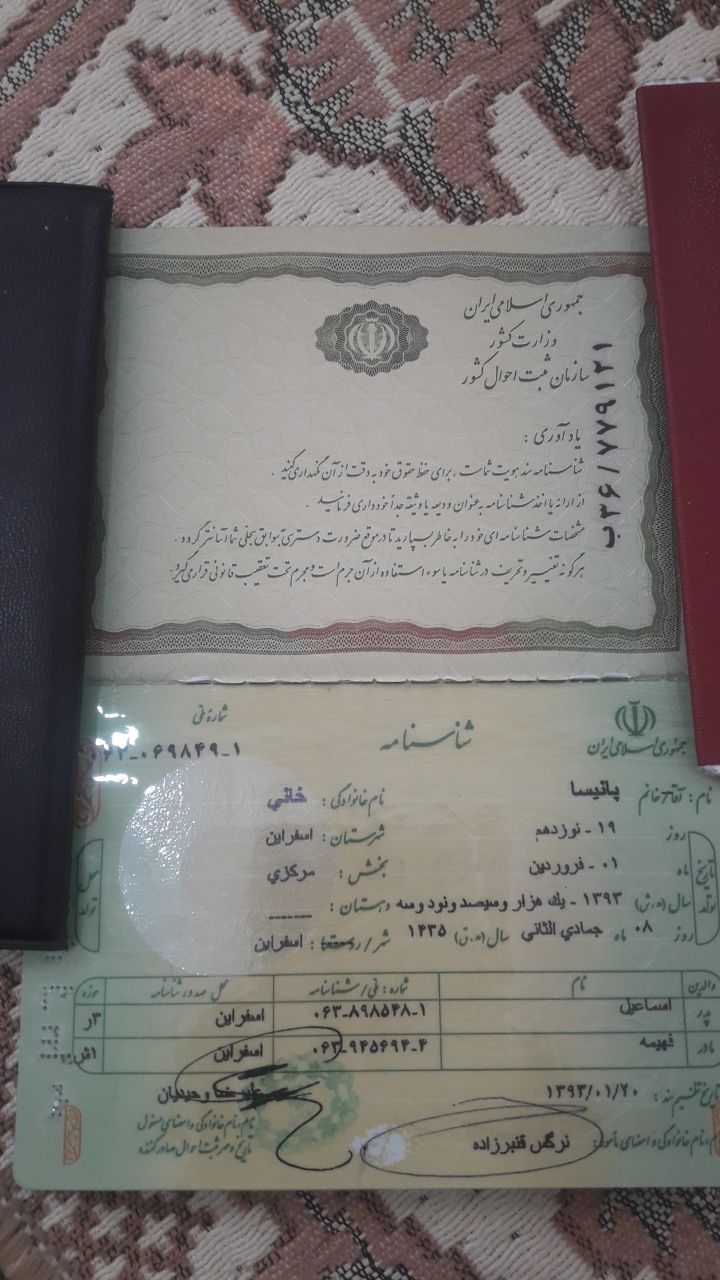 جمهوری اسلامی ایران
وزارت کشور
سازمان ثبت احوال کشور
ب۳۶/۷۷۹۱۲۱
یادآوری :
شناسنامه سند هویت شماست ، برای حفظ حقوق خود به دقت از آن نگهداری کنید .
از ارائه یا اخذ شناسنامه به عنوان ودیعه یا وثیقه جداً خودداری فرمائید .
مشخصات شناسنامه ای خود را به خاطر بسپارید تا در موقع ضرورت دسترسی به سوابق سجلی شما آسانتر گردد .
هرگونه تغییر و تحریف در شناسنامه یا سوء استفاده از آن جرم است و مجرم تحت تعقیب قانونی قرار می گیرد.
جمهوری اسلامی ایران
شناسنامه
شماره ملی
۰۶۹۸۴۹-۱
نام : آقا/خانم پانیسا نام خانوادگی : خاني
تاریخ تولد
روز ۱۹ - نوزدهم شهرستان : اسفراین
ماه ۰۱ - فروردین بخش : مرکزي
سال (ه.ش) ۱۳۹۳ - يك هزار وسیصد ونود وسه دهستان : ------
روز ۰۸ ماه جمادي الثاني سال (ه.ق) ۱۴۳۵ شهر / روستا : اسفراین
محل تولد
والدین نام شماره : ملی / شناسنامه محل صدور شناسنامه حوزه
پدر اسماعیل ۰۶۳-۸۹۸۵۴۸-۱ اسفراین ۳ر
مادر فهیمه ۰۶۳-۹۴۵۶۹۴-۴ اسفراین اش
تاریخ تنظیم سند : ۱۳۹۳/۰۱/۲۰ وحیدیان
نام، نام خانوادگی و امضای مأمور: نرگس قنبرزاده
نام، نام خانوادگی و امضای مسئول
تاریخ و مهر ثبت احوال صادرکننده